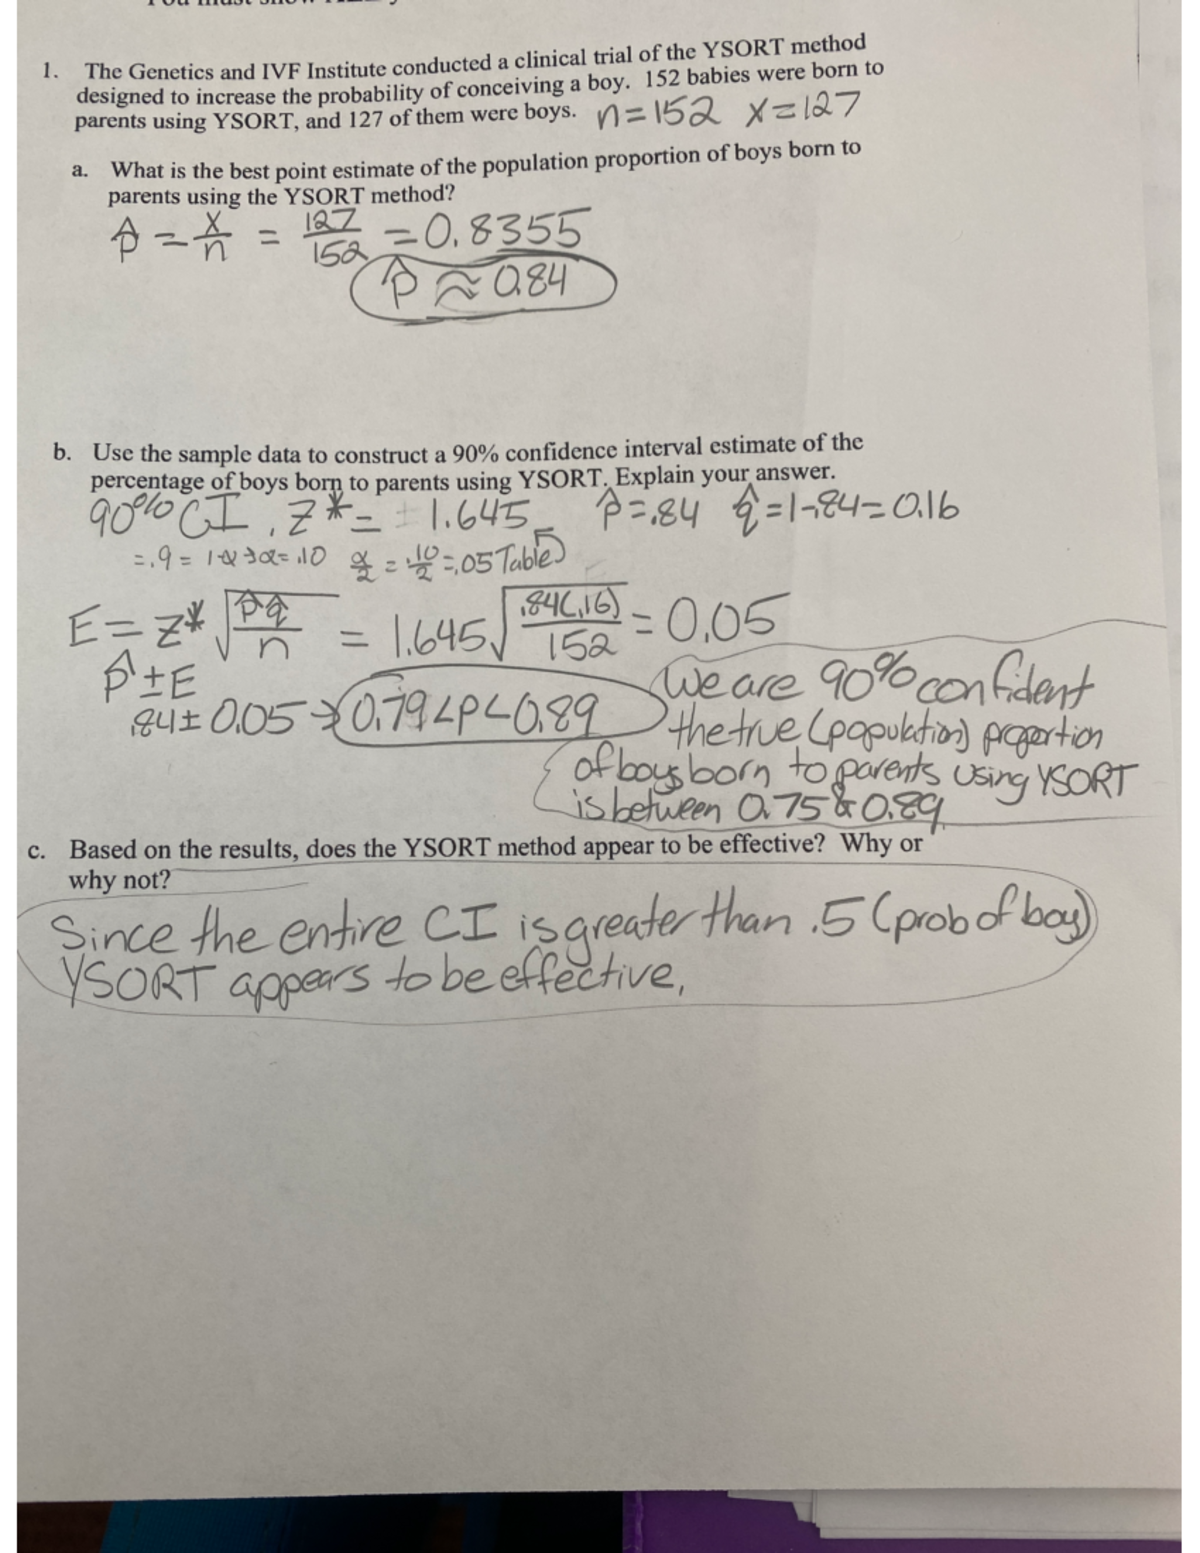 1. The Genetics and IVF Institute conducted a clinical trial of the YSORT method
designed to increase the probability of conceiving a boy. 152 babies were born to
parents using YSORT, and 127 of them were boys. n=152 x=127
a. What is the best point estimate of the population proportion of boys born to
parents using the YSORT method?
p̂ = x/n = 127/152 = 0.8355
p̂ ≈ 0.84
b. Use the sample data to construct a 90% confidence interval estimate of the
percentage of boys born to parents using YSORT. Explain your answer.
90% CI, z* = ± 1.645 p̂=.84 q̂=1-.84=0.16
=.9 = 1-α → α=.10 α/2 = .10/2 = .05 Table
E = z* √(p̂q̂/n) = 1.645 √(.84(.16)/152) = 0.05
p̂ ± E
.84 ± 0.05 → 0.79<p<0.89
We are 90% confident
the true (population) proportion
of boys born to parents using YSORT
is between 0.75 & 0.89
c. Based on the results, does the YSORT method appear to be effective? Why or
why not?
Since the entire CI is greater than .5 (prob of boy)
YSORT appears to be effective.